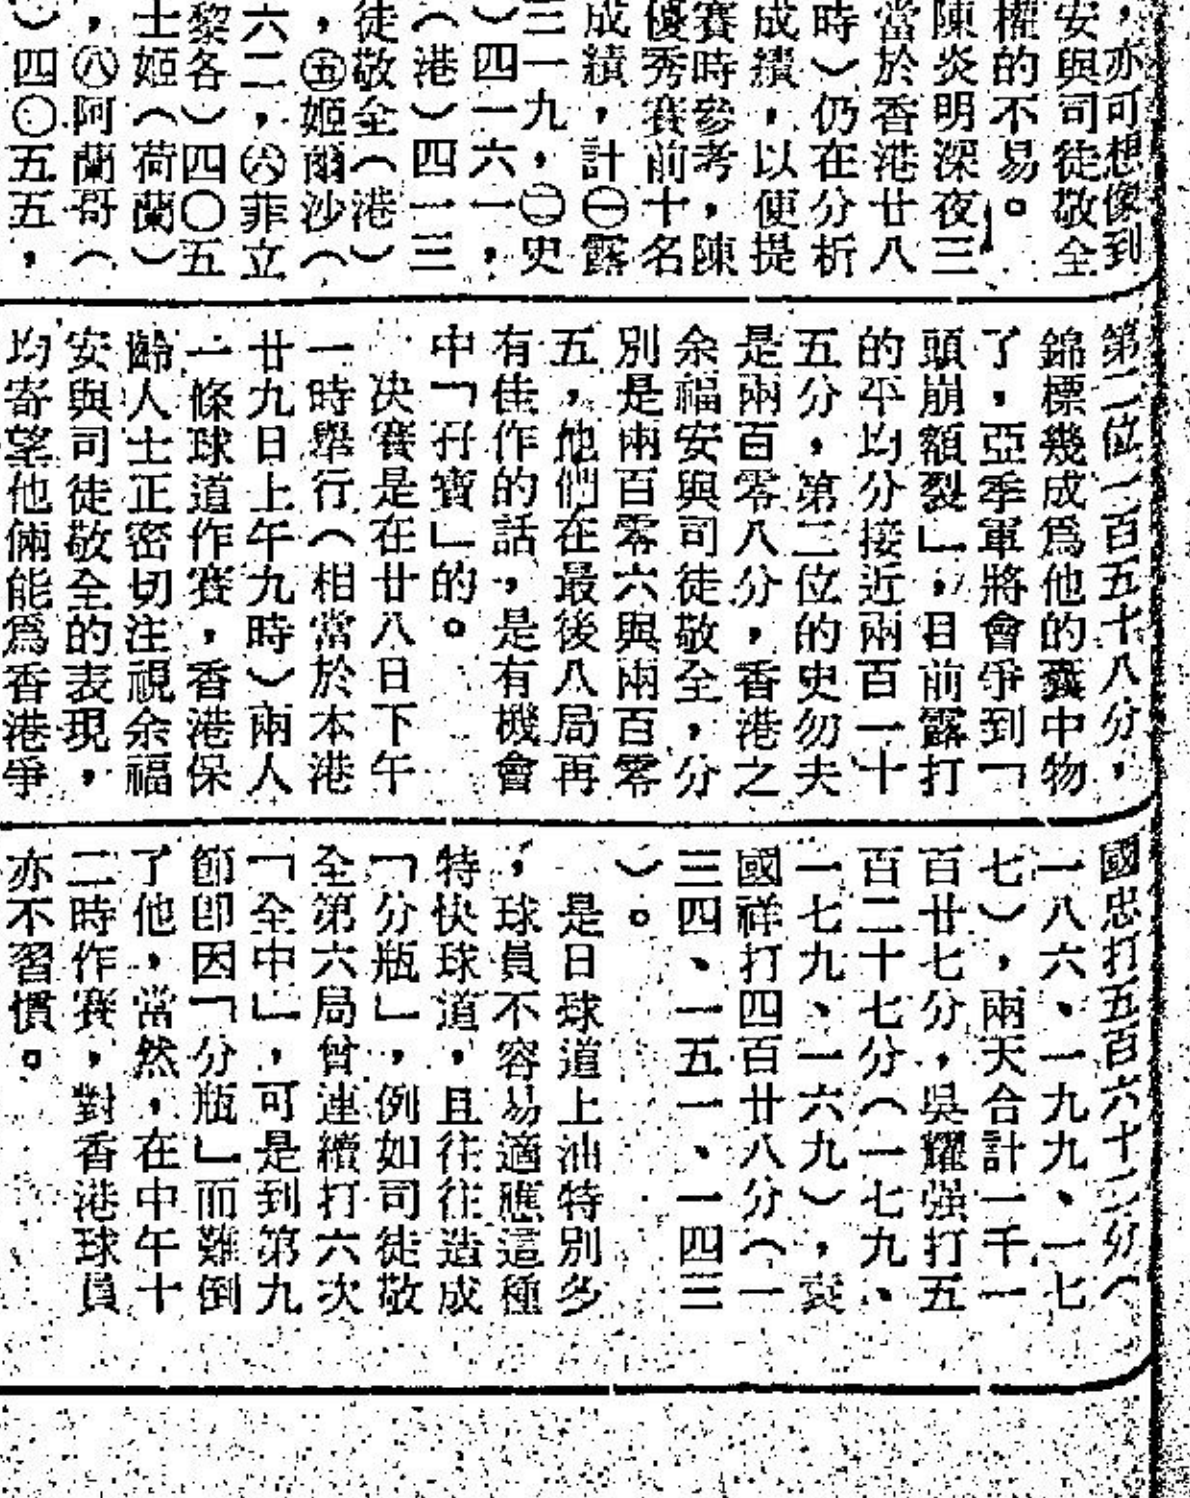 ，亦可想像到
安與司徒敬全
權的不易。
陳炎明深夜三
當於香港廿八
時）仍在分析
成績，以便提
賽時參考，陳
優秀賽前十名
成績，計㊀露
三一九，㊁史
）四一六一，
（港）四一三
徒敬全（港）
，㊄姬爾沙（
六二，㊅菲立
黎各）四〇五
士姬（荷蘭）
，㊇阿蘭哥（
）四〇五五，
第二位一百五十八分，
錦標幾成爲他的囊中物
了，亞季軍將會爭到「
頭崩額裂」，目前露打
的平均分接近兩百一十
五分，第二位的史勿夫
是兩百零八分，香港之
余福安與司徒敬全，分
別是兩百零六與兩百零
五，他們在最後八局再
有佳作的話，是有機會
中「孖寶」的。
決賽是在廿八日下午
一時舉行（相當於本港
廿九日上午九時）兩人
一條球道作賽，香港保
齡人士正密切注視余福
安與司徒敬全的表現，
均寄望他倆能爲香港爭
國忠打五百六十二分（
一八六、一九九、一七
七），兩天合計一千一
百廿七分，吳耀强打五
百二十七分（一七九、
一七九、一六九），袁
國祥打四百廿八分（一
三四、一五一、一四三
）。
是日球道上油特別多
，球員不容易適應這種
特快球道，且往往造成
「分瓶」，例如司徒敬
全第六局曾連續打六次
「全中」，可是到第九
節卽因「分瓶」而難倒
了他，當然，在中午十
二時作賽，對香港球員
亦不習慣。